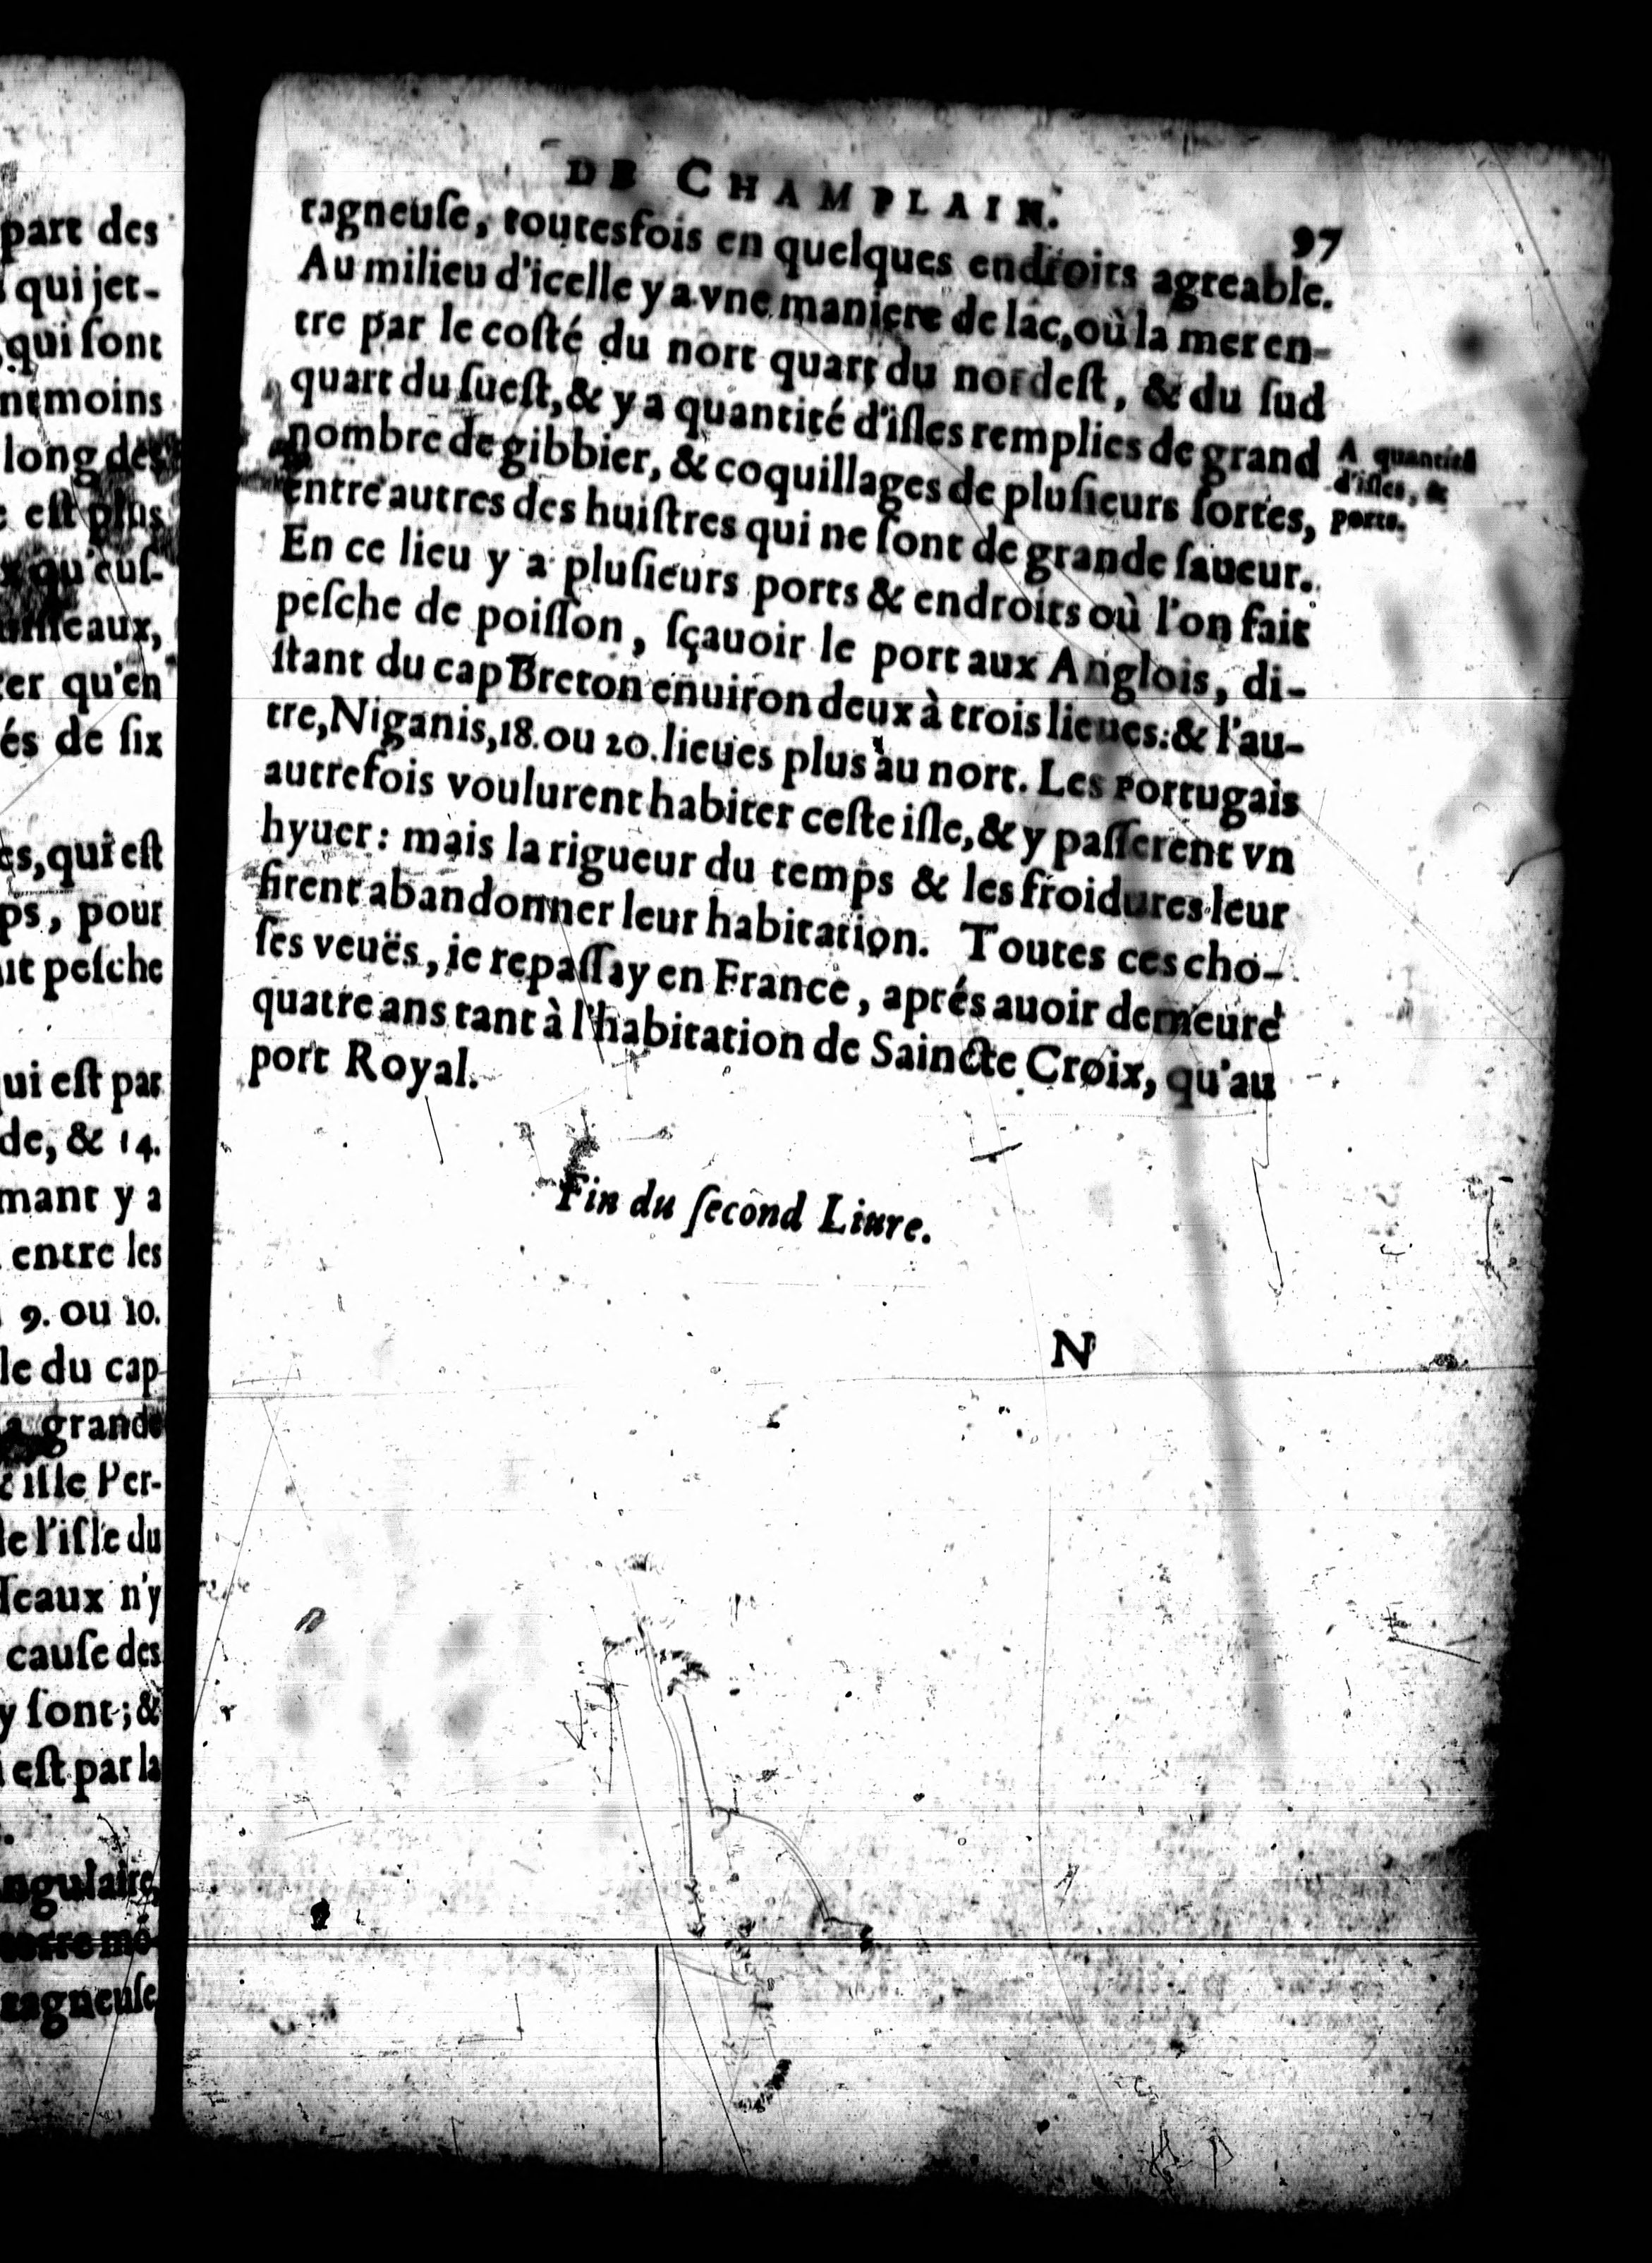 part des
qui jet-
qui ſont
ntmoins
long des
eſt plus
qu'euſ-
ſſeaux,
er qu'en
és de ſix
es, qui eſt
ps, pour
it peſche
qui eſt par
de, & 14.
mant y a
entre les
9. ou 10.
le du cap
a grande
iſle Per-
de l'iſle du
ſſeaux n'y
cauſe des
y ſont; &
eſt par la
ngulaire,
terre mõ-
tagneuſe
DE CHAMPLAIN. 97
tagneuſe, toutesfois en quelques endroits agreable.
Au milieu d'icelle y a vne maniere de lac, où la mer en-
tre par le coſté du nort quart du nordeſt, & du ſud
quart du ſueſt, & y a quantité d'iſles remplies de grand
nombre de gibbier, & coquillages de pluſieurs ſortes,
entre autres des huiſtres qui ne ſont de grande ſaueur.
En ce lieu y a pluſieurs ports & endroits où l'on fait
peſche de poiſſon, ſçauoir le port aux Anglois, di-
ſtant du cap Breton enuiron deux à trois lieues: & l'au-
tre, Niganis, 18. ou 20. lieues plus au nort. Les Portugais
autrefois voulurent habiter ceſte iſle, & y paſſerent vn
hyuer: mais la rigueur du temps & les froidures leur
firent abandonner leur habitation. Toutes ces cho-
ſes veuës, ie repaſſay en France, aprés auoir demeuré
quatre ans tant à l'habitation de Saincte Croix, qu'au
port Royal.
A quantité
d'iſles, &
ports.
Fin du ſecond Liure.
N